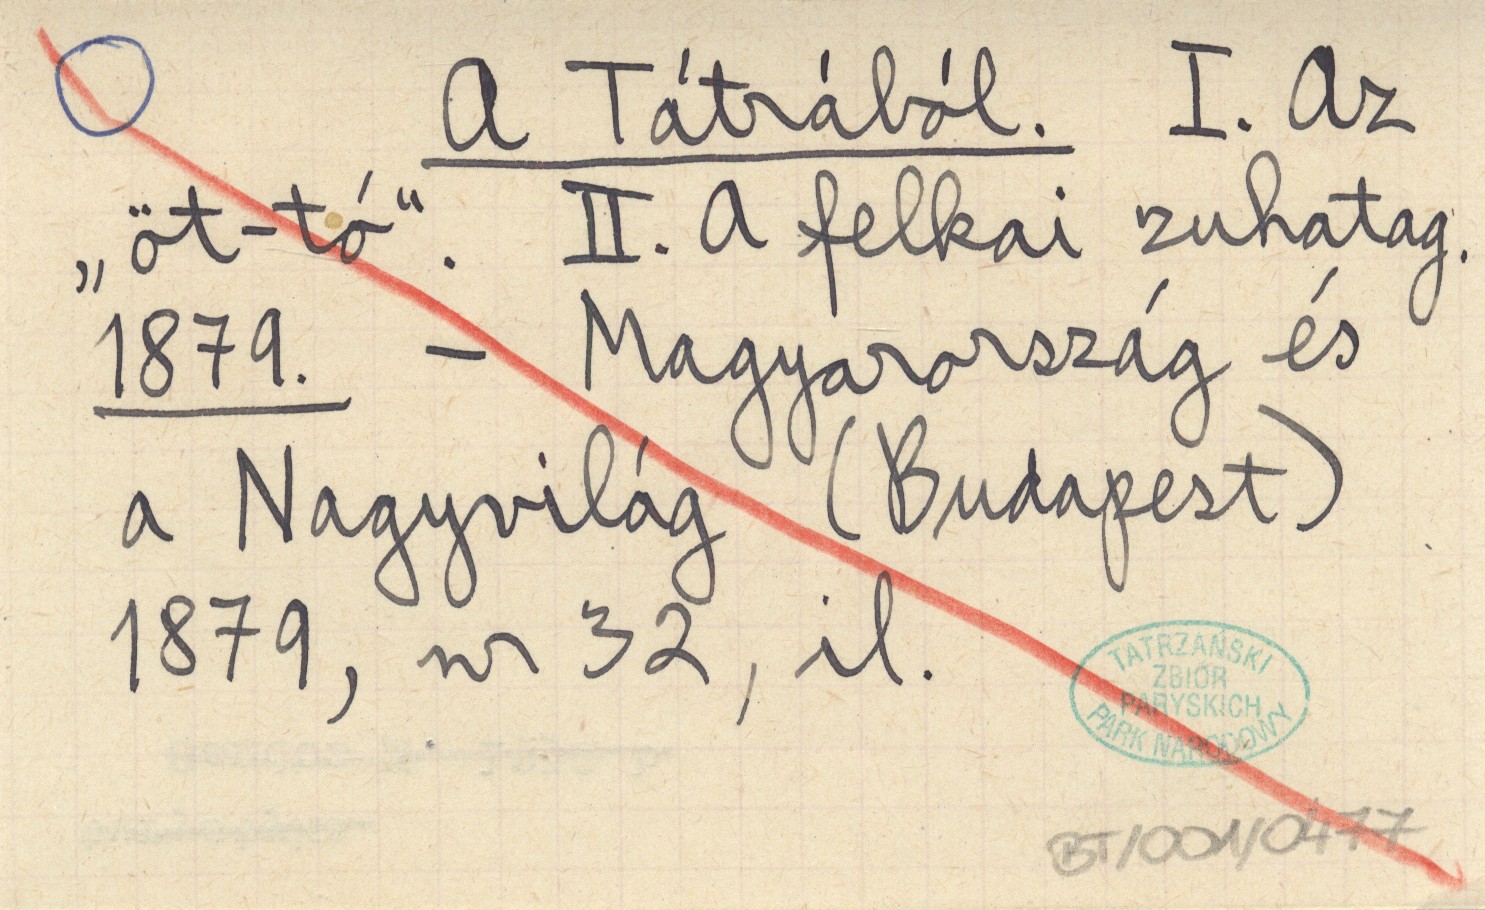 A Tátrából. I. Az
„öt-tó“. II. A felkai zuhatag.
1879. - Magyarország és
a Nagyvilág (Budapest)
1879, nr 32, il.
TATRZAŃSKI
ZBIÓR
PARYSKICH
PARK NARODOWY
BT/001/0477